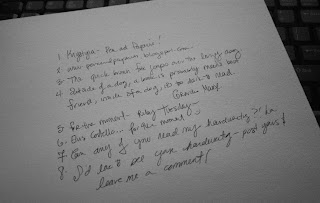 1 Pen and Paper!
2 www. blogspot.com
3 The quick brown fox jumps over the lazy dog
4 Outside of a dog, a book is probably man's best
friend, inside of a dog, it's too dark to read.
Groucho Marx
5 For the moment- Ruby Tuesday
6 Elvis Costello... for the moment
7 Can any of you read my handwriting?! ha
8 I'd love to see your handwriting- post yours &
leave me a comment!